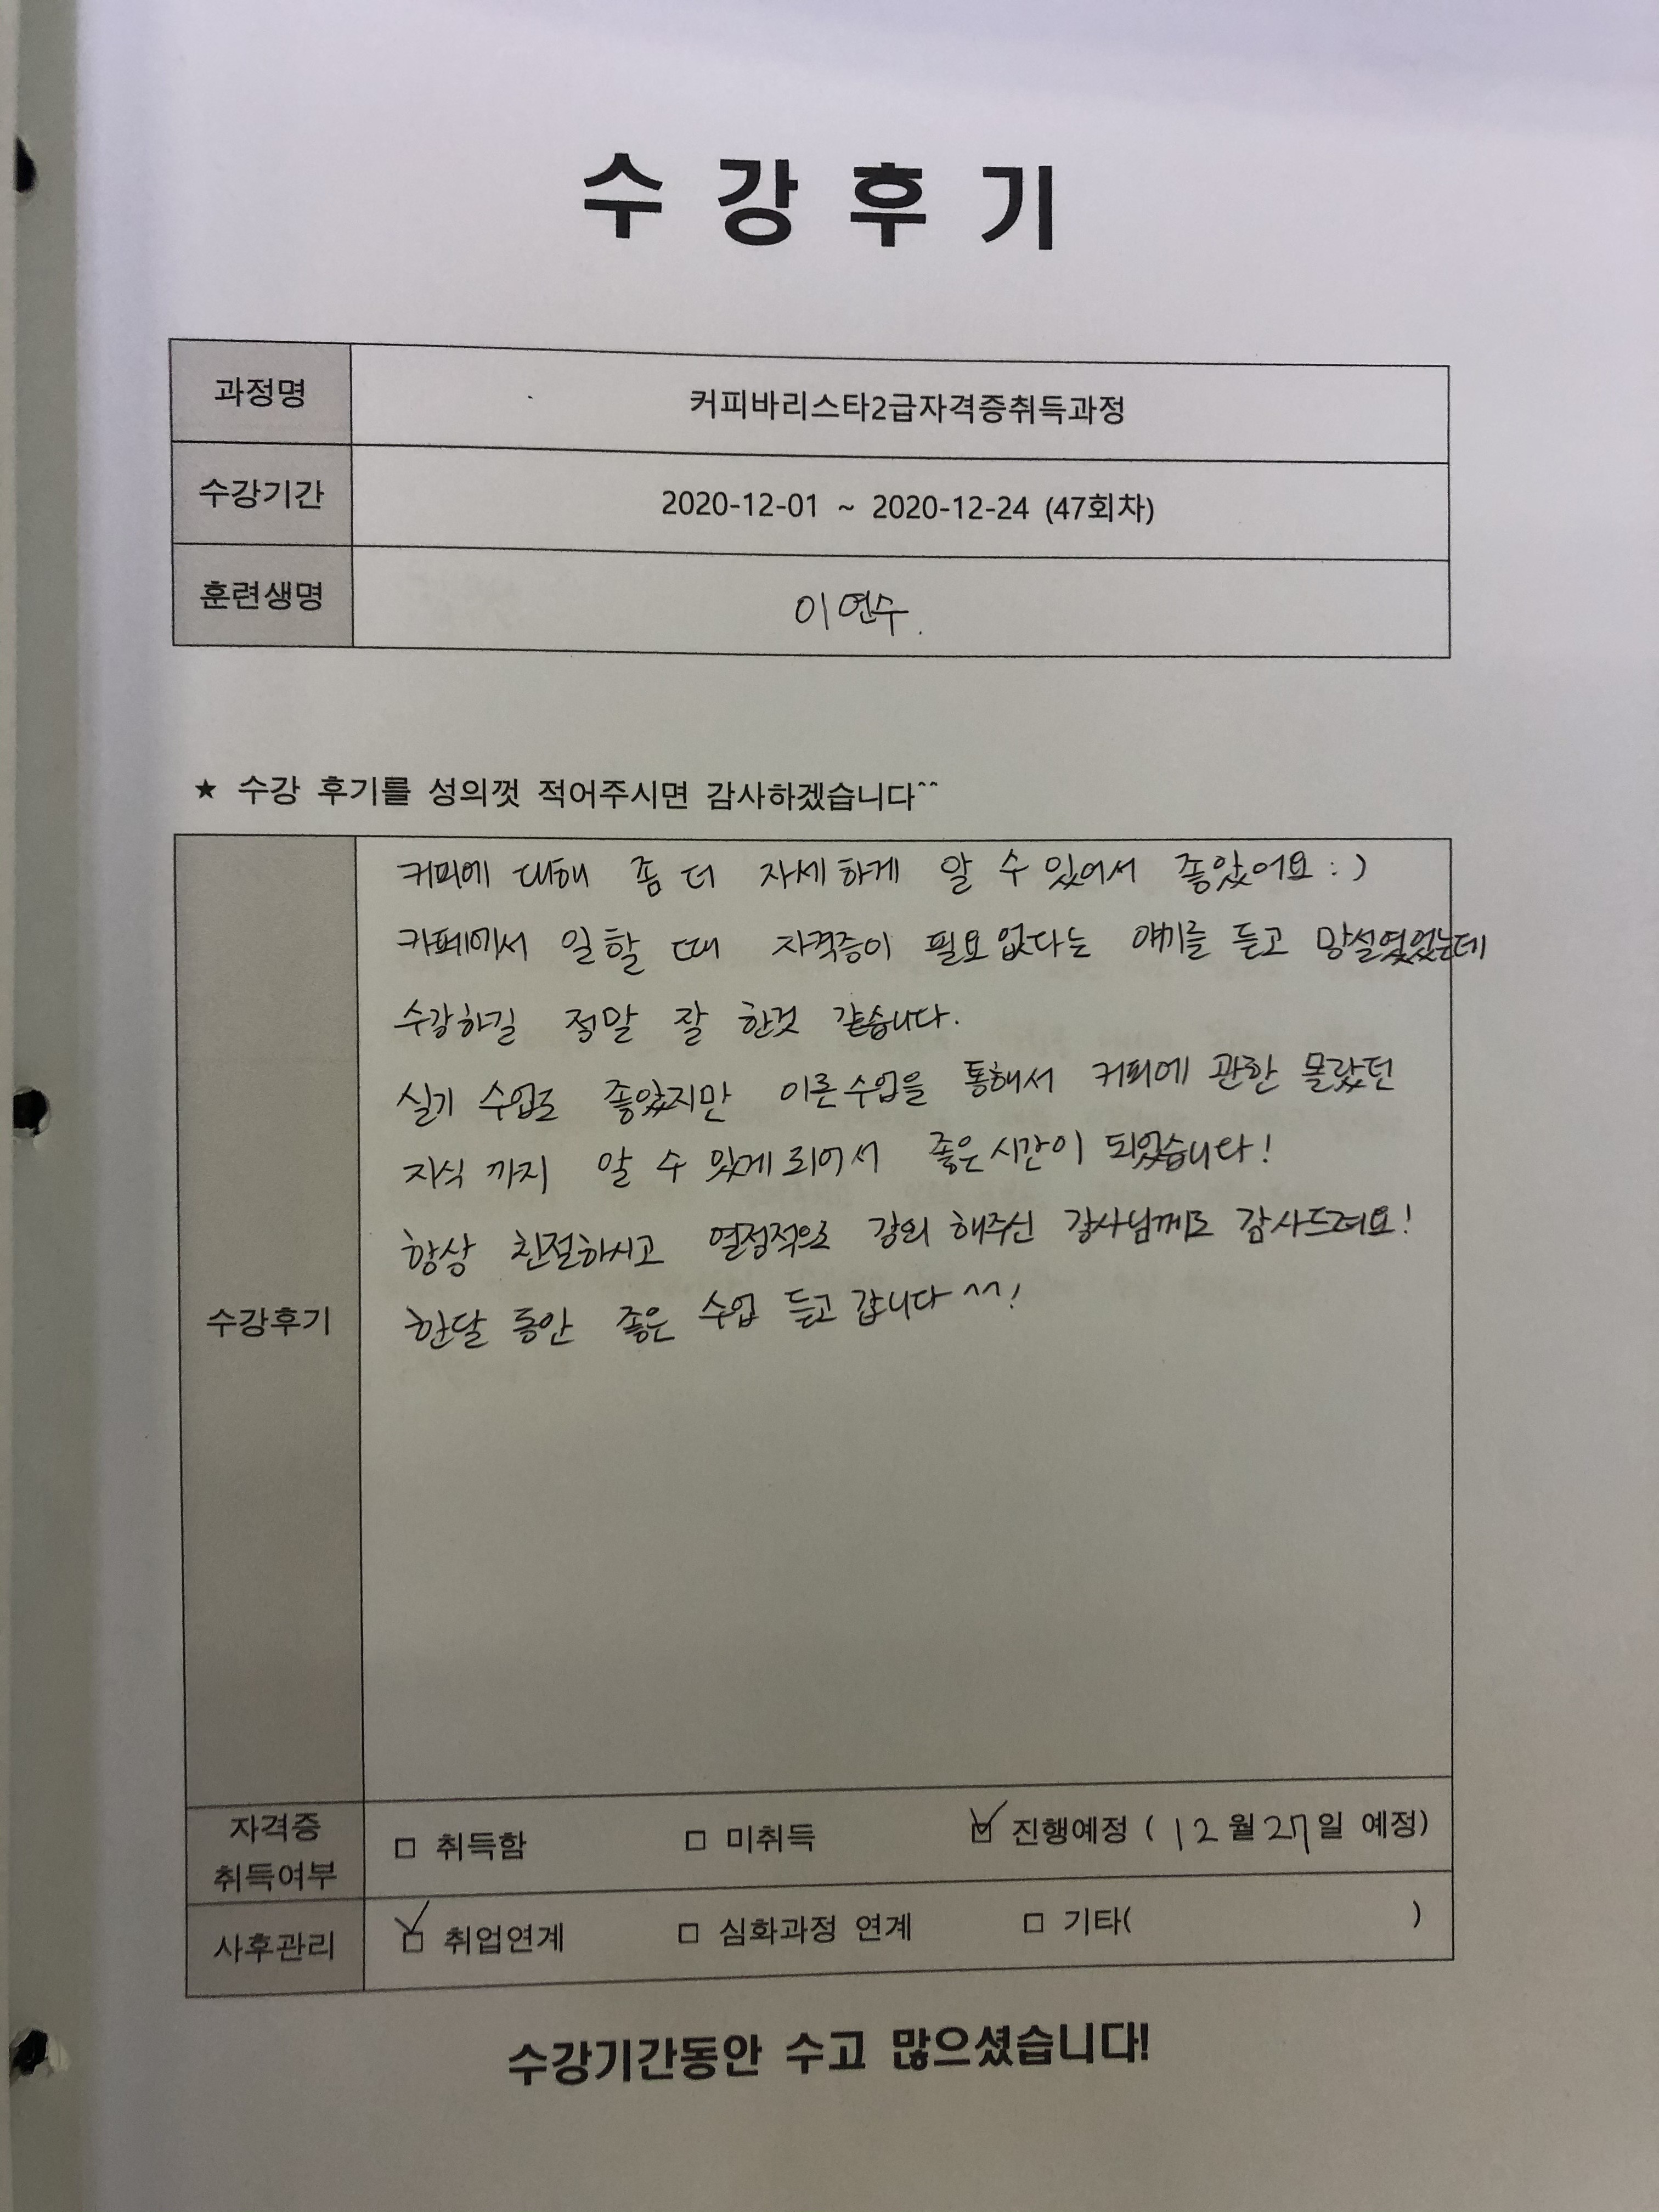 수강후기
과정명 커피바리스타2급자격증취득과정
수강기간 2020-12-01 ~ 2020-12-24 (47회차)
훈련생명 이연수.
★ 수강 후기를 성의껏 적어주시면 감사하겠습니다^^
커피에 대해 좀 더 자세하게 알 수 있어서 좋았어요 : )
카페에서 일할 때 자격증이 필요없다는 얘기를 듣고 망설였었는데
수강하길 정말 잘 한것 같습니다.
실기 수업도 좋았지만 이론수업을 통해서 커피에 관한 몰랐던
지식 까지 알 수 있게 되어서 좋은시간이 되었습니다!
항상 친절하시고 열정적으로 강의 해주신 강사님께도 감사드려요!
한달 동안 좋은 수업 듣고 갑니다 ^^!
수강후기
자격증
취득여부
□ 취득함 □ 미취득 ☑ 진행예정 ( 12월 27일 예정)
사후관리 ☑ 취업연계 □ 심화과정 연계 □ 기타( )
수강기간동안 수고 많으셨습니다!